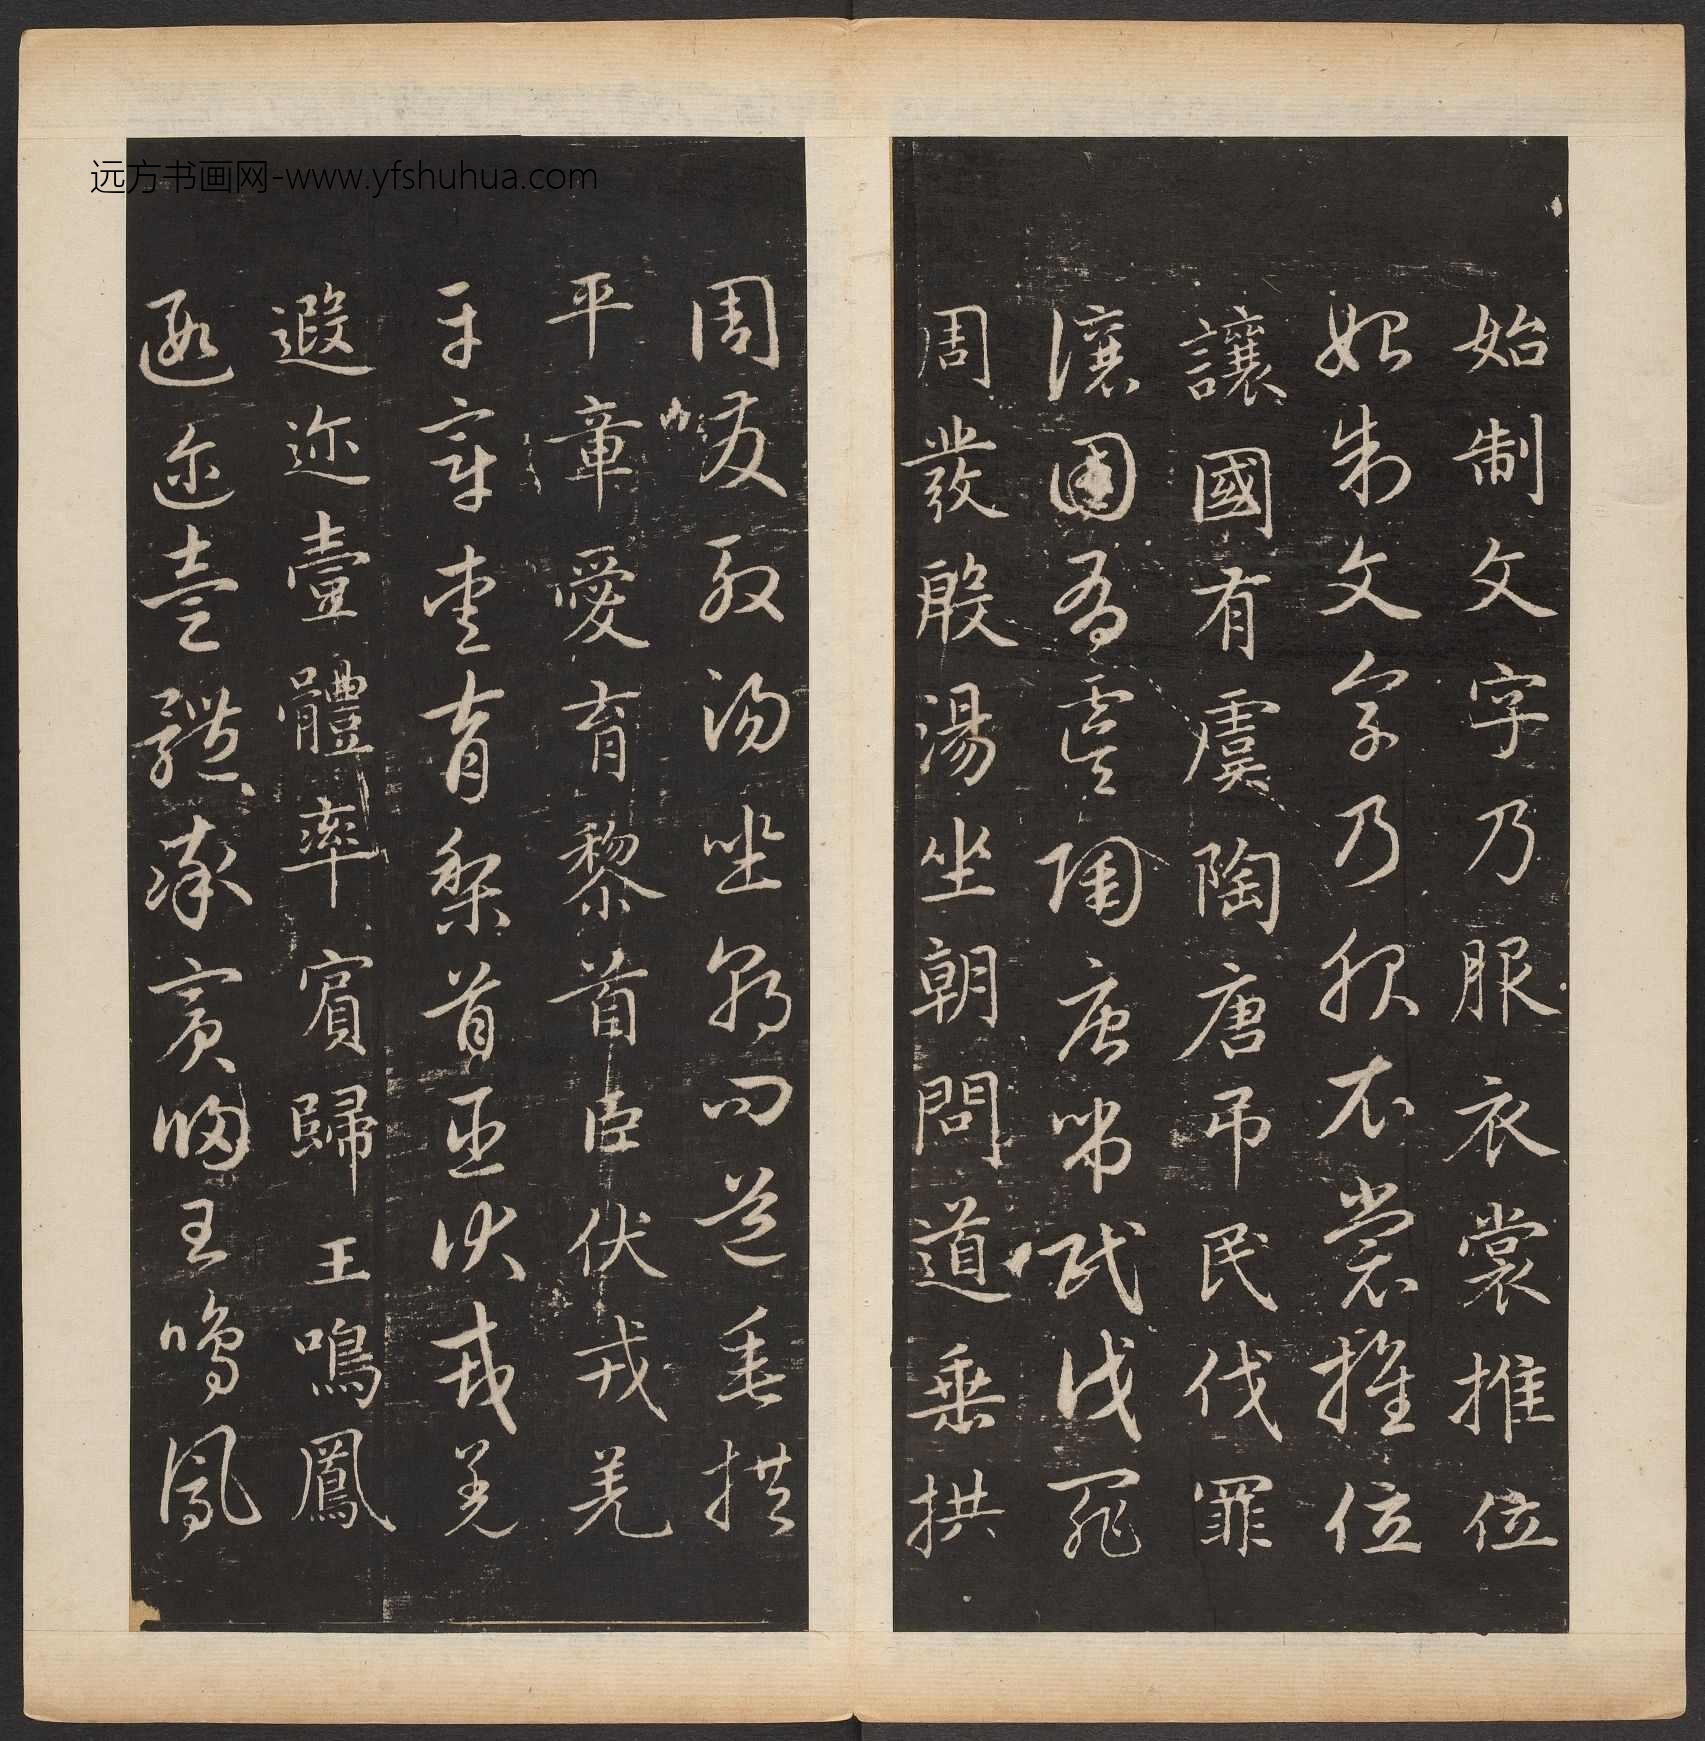 远方书画网-www.yfshuhua.com
始制文字乃服衣裳推位
始制文字乃服衣裳推位
讓國有虞陶唐吊民伐罪
讓國有虞陶唐吊民伐罪
周發殷湯坐朝問道垂拱
周發殷湯坐朝問道垂拱
平章愛育黎首臣伏戎羌
平章愛育黎首臣伏戎羌
遐迩壹體率賓歸王鳴鳳
遐迩壹體率賓歸王鳴鳳